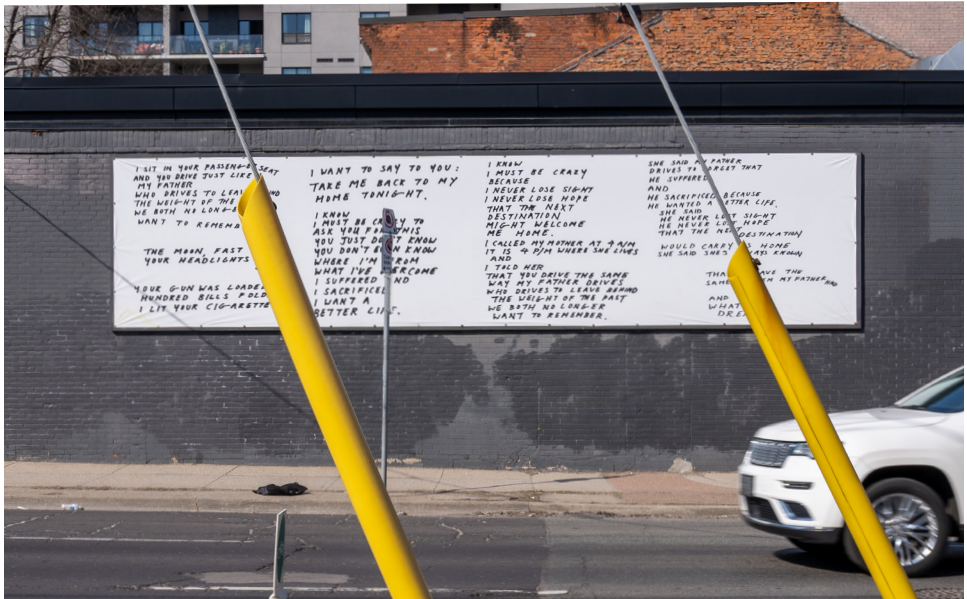 I SIT IN YOUR PASSENGER SEAT
AND YOU DRIVE JUST LIKE
MY FATHER
WHO DRIVES TO LEAVE BEHIND
THE WEIGHT OF THE
WE BOTH NO LONGER
WANT TO REMEMBER
THE MOON, FAST
YOUR HEADLIGHTS
YOUR GUN WAS LOADED
HUNDRED BILLS FOLD
I LIT YOUR CIGARETTE
I WANT TO SAY TO YOU:
TAKE ME BACK TO MY
HOME TONIGHT.
I KNOW
I MUST BE CRAZY TO
ASK YOU FOR THIS
YOU JUST DON'T KNOW
YOU DON'T EVEN KNOW
WHERE I'M FROM
WHAT I'VE OVERCOME
I SUFFERED AND
I SACRIFICED
I WANT A
BETTER LIFE.
I KNOW
I MUST BE CRAZY
BECAUSE
I NEVER LOSE SIGHT
I NEVER LOSE HOPE
THAT THE NEXT
DESTINATION
MIGHT WELCOME
ME HOME.
I CALLED MY MOTHER AT 4 A/M
IT IS 4 P/M WHERE SHE LIVES
AND
I TOLD HER
THAT YOU DRIVE THE SAME
WAY MY FATHER DRIVES
WHO DRIVES TO LEAVE BEHIND
THE WEIGHT OF THE PAST
WE BOTH NO LONGER
WANT TO REMEMBER.
SHE SAID MY FATHER
DRIVES TO FORGET THAT
HE SUFFERED
AND
HE SACRIFICED BECAUSE
HE WANTED A BETTER LIFE.
SHE SAID
HE NEVER LOST SIGHT
HE NEVER LOST HOPE
THAT THE NEXT DESTINATION
WOULD CARRY HOME
SHE SAID SHE'S ALWAYS KNOWN
THAT HAVE THE
SAME MY FATHER HAD
AND
WHAT